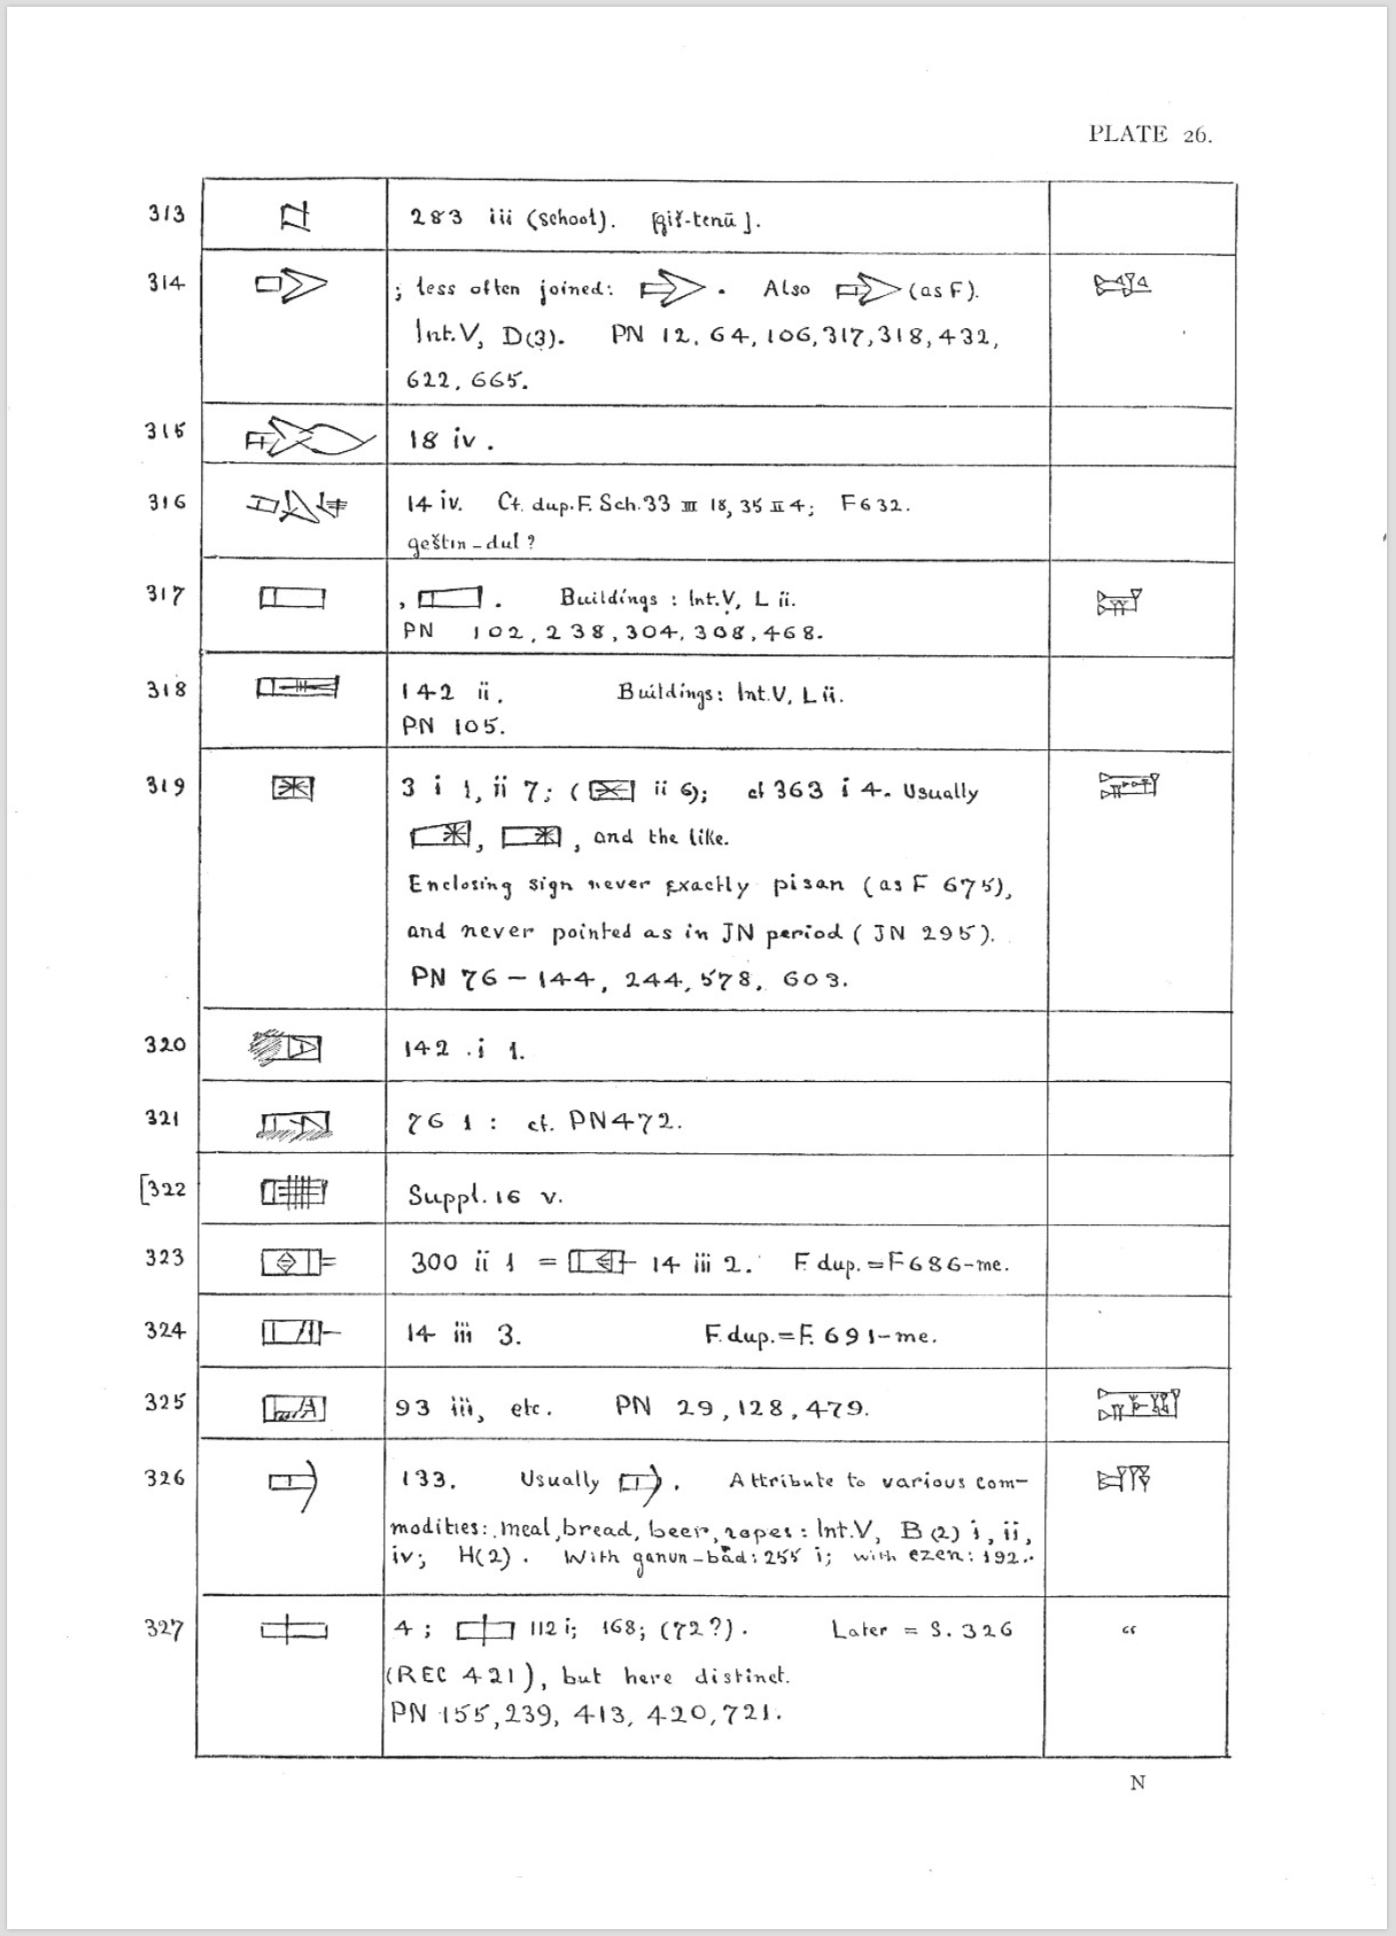 PLATE 26.
313 283 iii (school). [giš-tenū].
314 ; less often joined: . Also (as F).
Int. V, D(3). PN 12, 64, 106, 317, 318, 432,
622, 665.
315 18 iv.
316 14 iv. Cf. dup. F. Sch. 33 III 18, 35 II 4; F 632.
geštin-dul?
317 , . Buildings: Int. V, L ii.
PN 102, 238, 304, 308, 468.
318 142 ii. Buildings: Int. V, L ii.
PN 105.
319 3 i 1, ii 7; ( ii 6); cf 363 i 4. Usually
, , and the like.
Enclosing sign never exactly pisan (as F 675),
and never pointed as in JN period (JN 295).
PN 76-144, 244, 578, 603.
320 142 i 1.
321 76 1: cf. PN 472.
[322 Suppl. 16 v.
323 300 ii 1 = 14 iii 2. F. dup. = F 686-me.
324 14 iii 3. F. dup. = F. 691-me.
325 93 iii, etc. PN 29, 128, 479.
326 133. Usually . Attribute to various com-
modities: meal, bread, beer, ropes: Int. V, B (2) i, ii,
iv; H(2). With ganun-bàd: 255 i; with ezen: 192.
327 4; 112 i; 168; (72?). Later = S. 326 "
(REC 421), but here distinct.
PN 155, 239, 413, 420, 721.
N